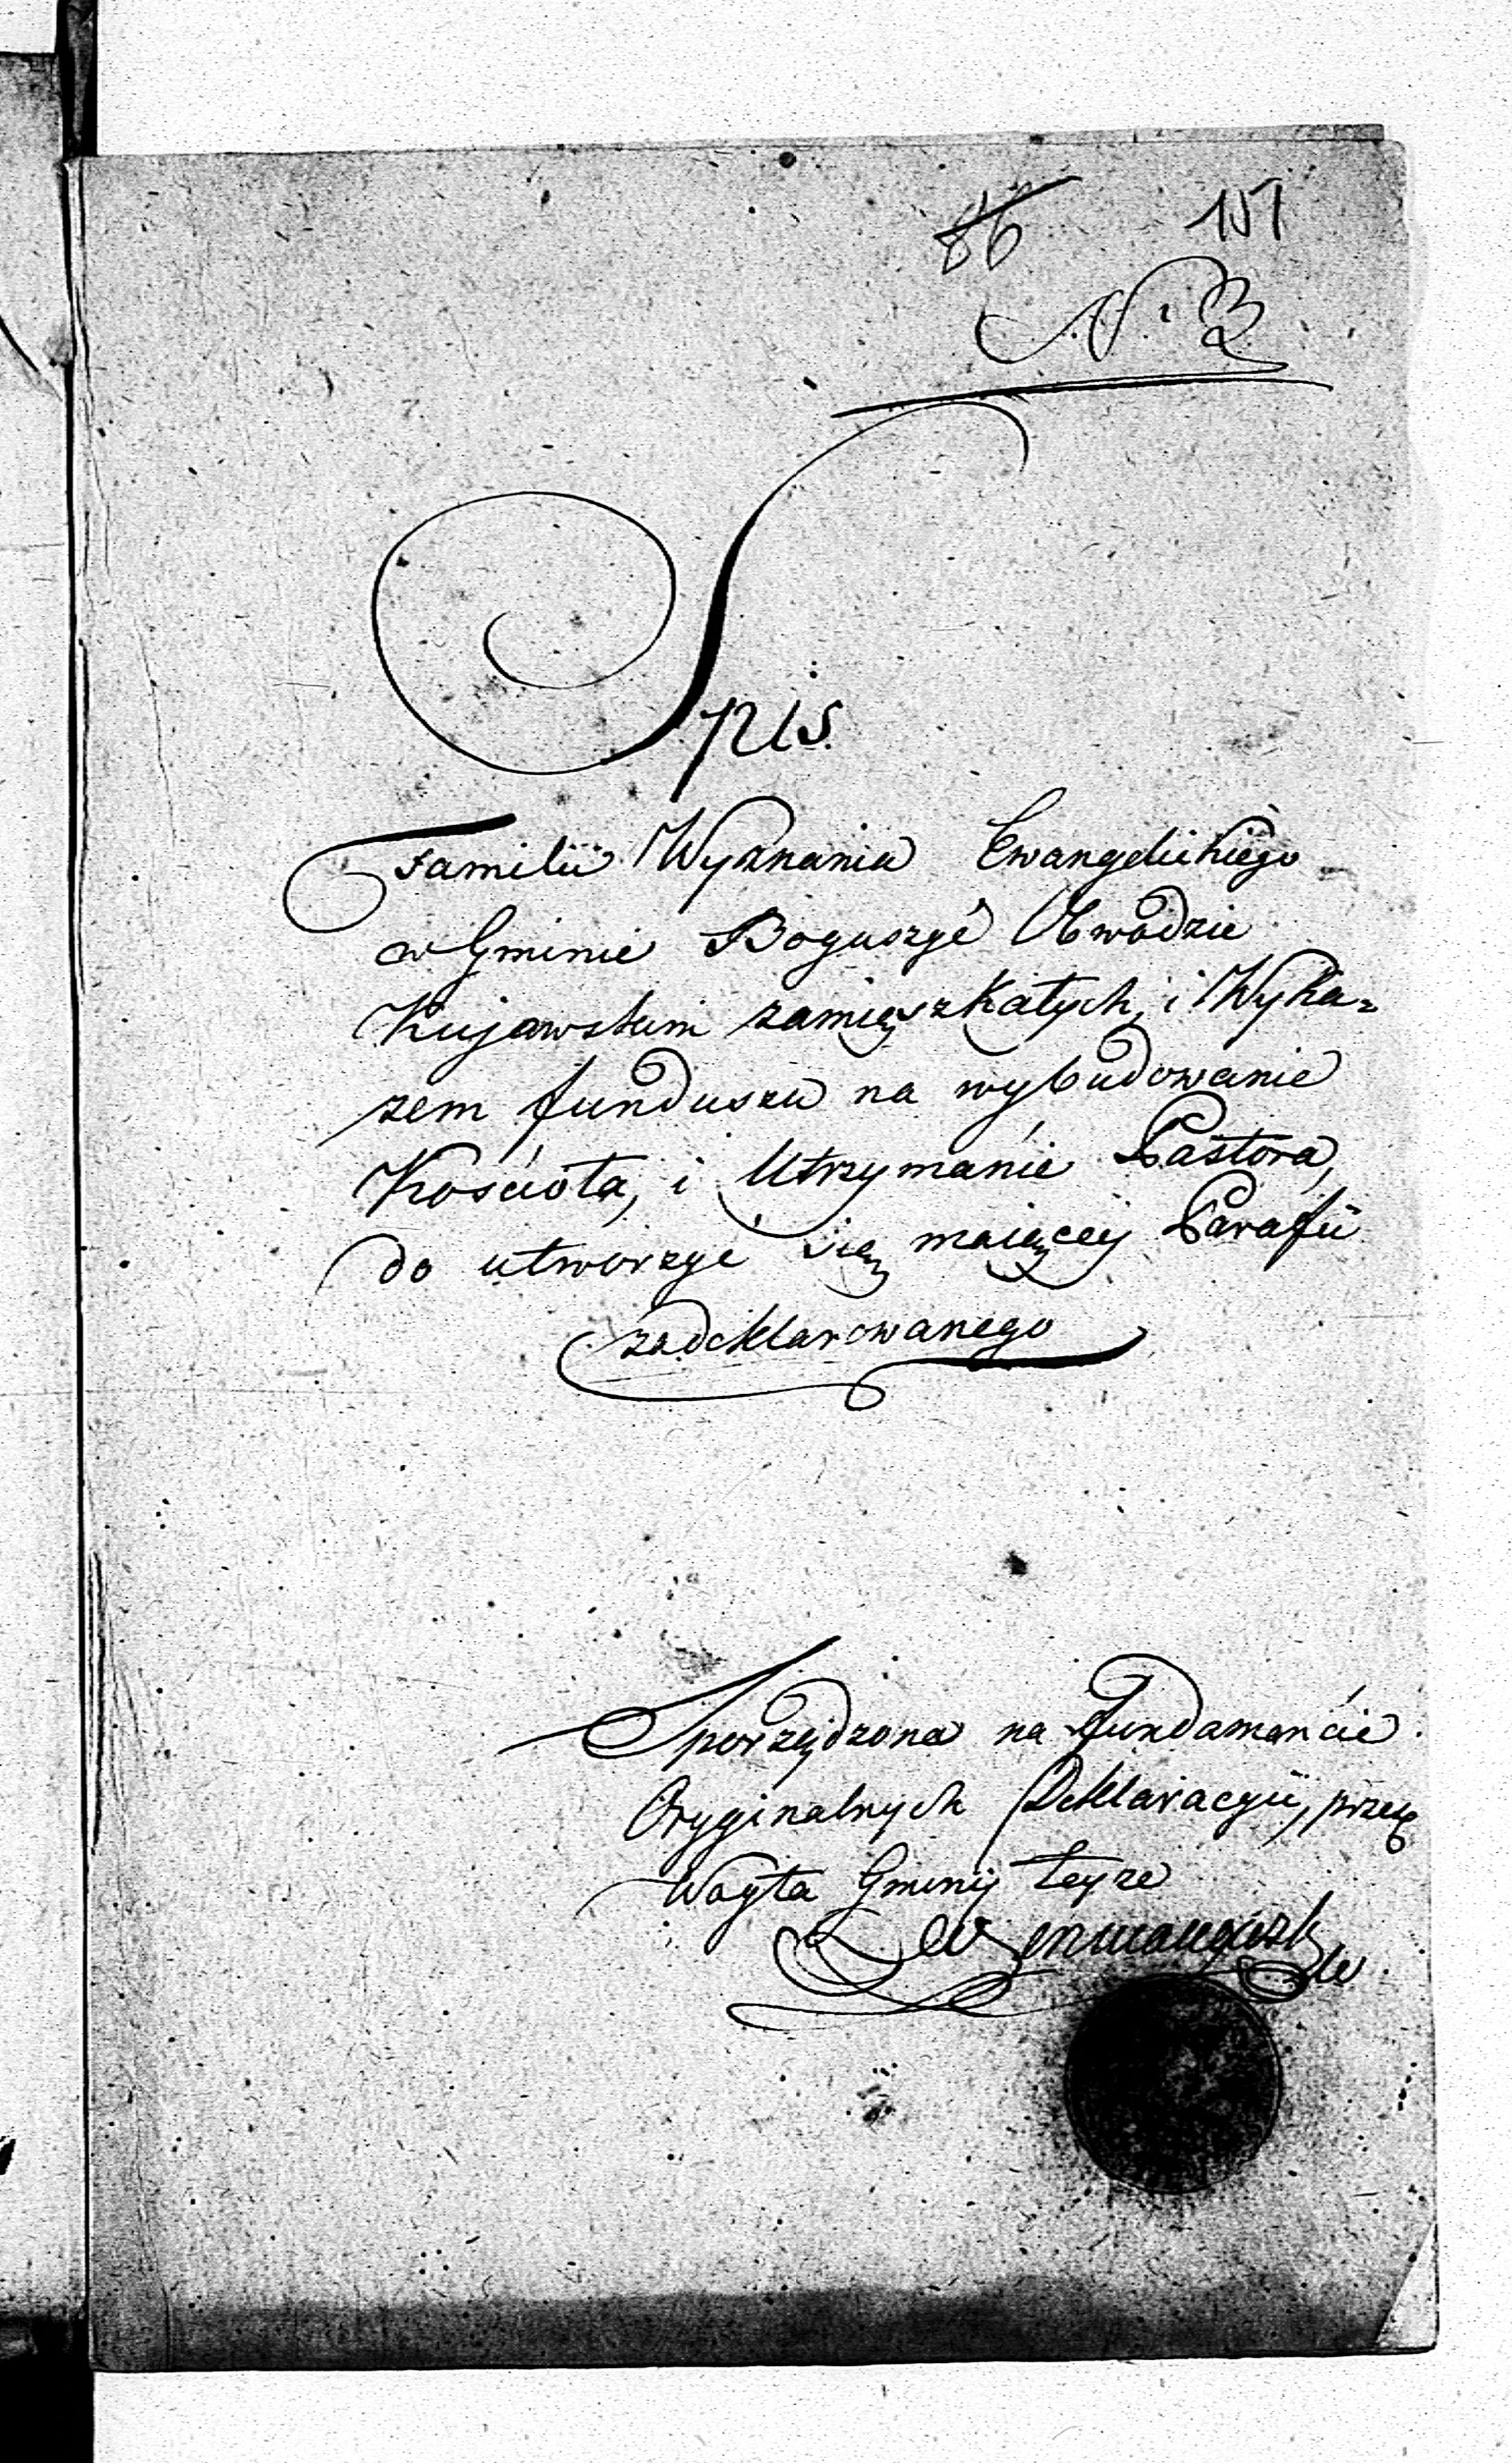 86 151
N. 3
Spis
Familii Wyznania Ewangelickiego
w Gminie Boguszyce Obwodzie
Kujawskim zamięszkałych, i Wyka=
zem funduszu na wybudowanie
Kościoła, i Utrzymanie Pastora,
do utworzyć się maiącey Parafii
zadeklarowanego
Sporządzona na fundamencie
Oryginalnych Deklaracyii, przez
Woyta Gminy teyże